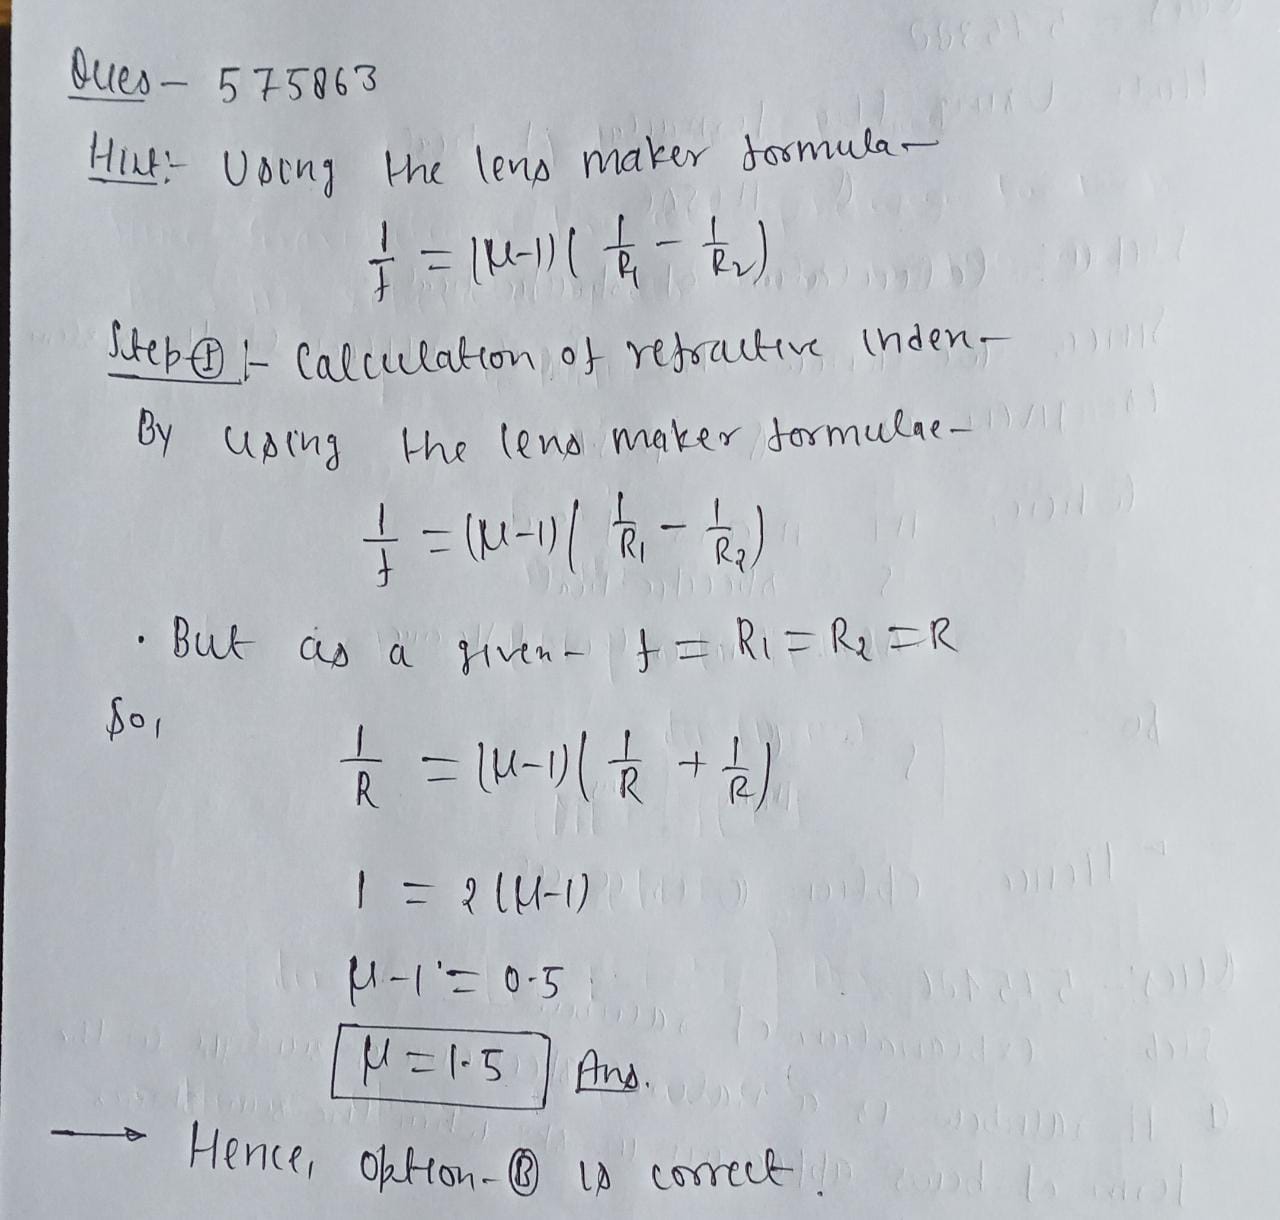 Ques - 575863
Hint:- Using the lens maker formula -
1/f = (μ-1)(1/R₁ - 1/R₂)
Step Ⓘ :- Calculation of refractive inden -
By using the lens maker formulae -
1/f = (μ-1)(1/R₁ - 1/R₂)
· But as a given - f = R₁ = R₂ = R
So,
1/R = (μ-1)(1/R + 1/R)
1 = 2(μ-1)
μ-1 = 0.5
μ = 1.5 Ans.
→ Hence, option-Ⓑ is correct.